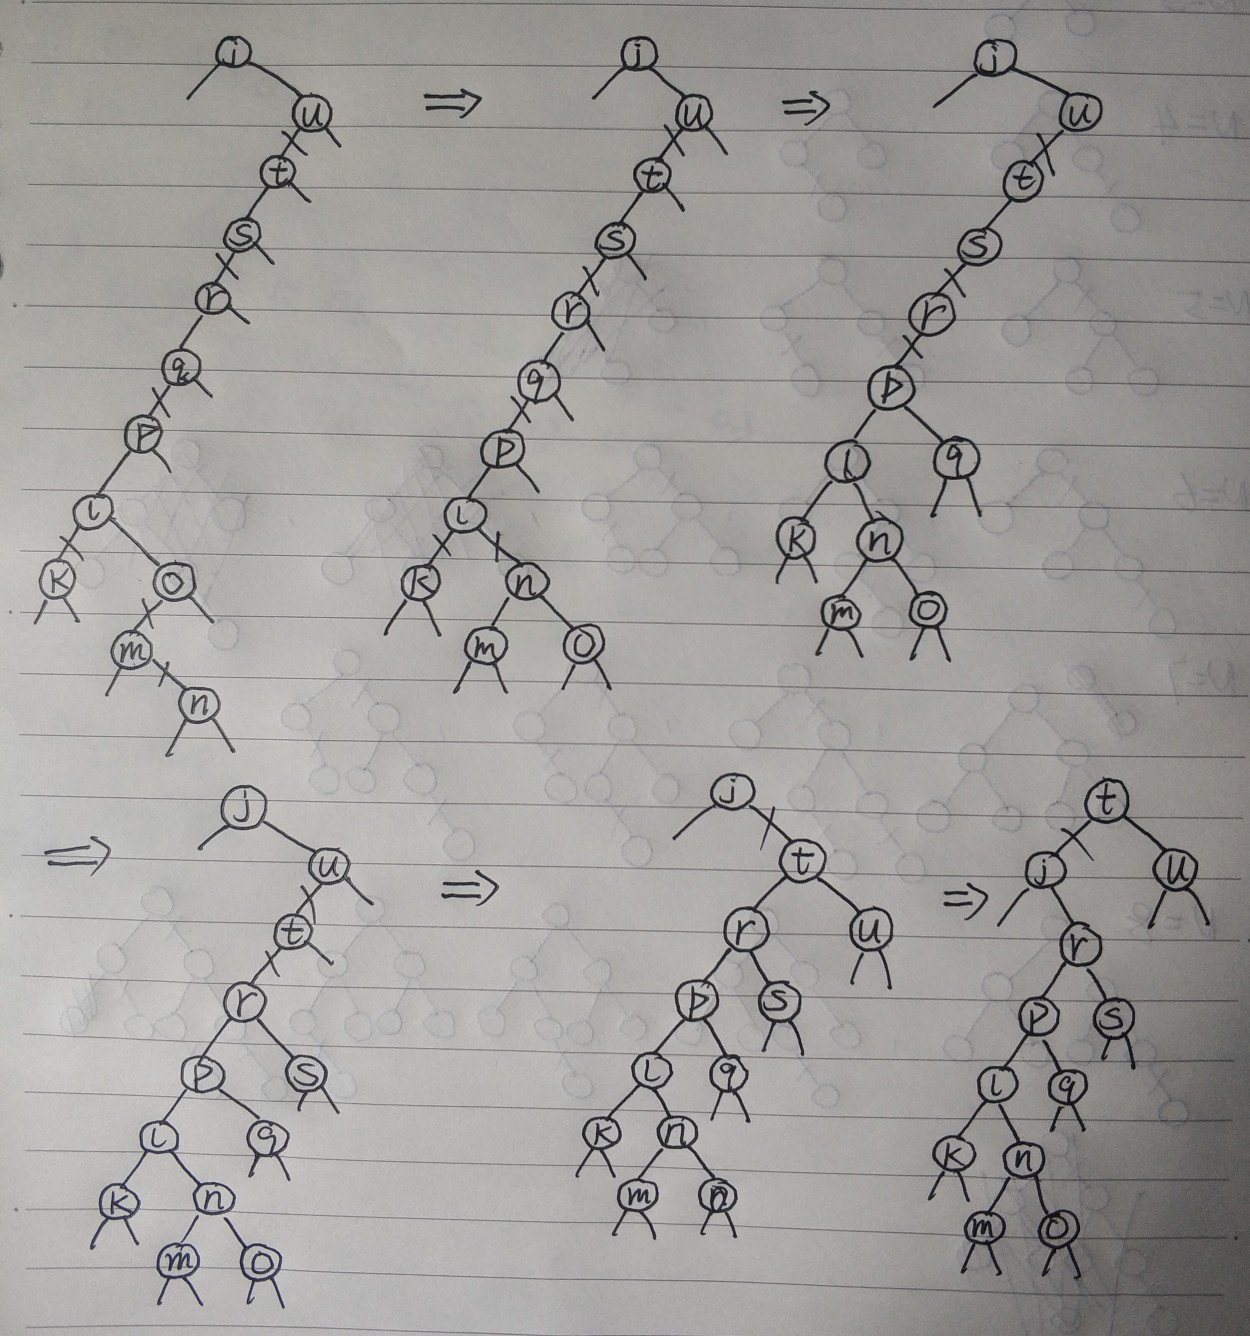 j
u
t
s
r
q
p
l
k o
m
n
⇒
j
u
t
s
r
q
p
l
k n
m o
⇒
j
u
t
s
r
p
l q
k n
m o
⇒
j
u
t
r
p s
l q
k n
m o
⇒
j
t
r u
p s
l q
k n
m n
⇒
t
j u
r
p s
l q
k n
m o